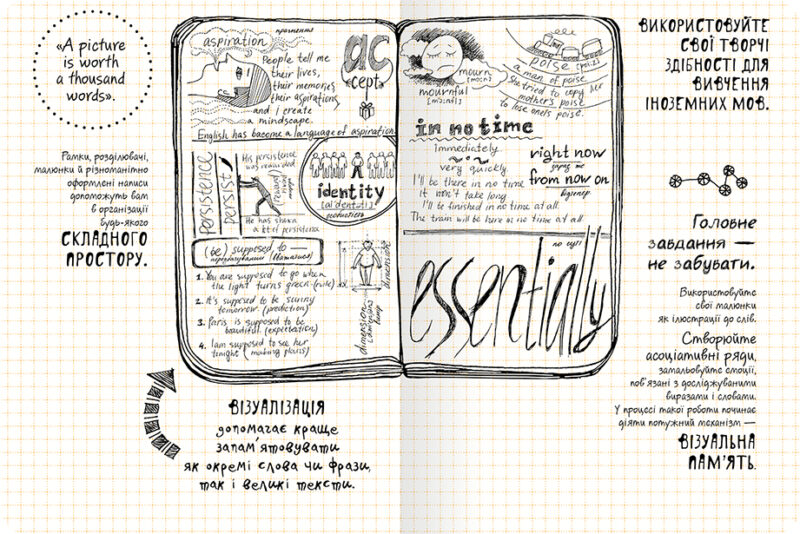 «A picture
is worth
a thousand
words».
Рамки, розділювачі,
малюнки й різноманітно
оформлені написи
допоможуть вам
в організації
будь-якого
СКЛАДНОГО
ПРОСТОРУ.
aspiration
прагнення
People tell me
their lives,
their memories,
their aspirations,
and I create
a mindscape.
English has become a language of aspiration.
ac
cept
Persistence
persist
His persistence
was rewarded
(reward)
He has shown
a bit of persistence
identity
[aɪˈdentɪti]
(be) supposed to —
1. You are supposed to go when
the light turns green (rule)
2. It's supposed to be sunny
tomorrow. (prediction)
3. Paris is supposed to be
beautiful. (expectation)
4. I am supposed to see her
tonight (making plans)
dimension
dimensions
mourn
[mɔ:n]
mournful
[mɔ:nfl]
poise
[pɔɪz]
a man of poise
She tried to copy her
mother's poise
to lose one's poise.
in no time
immediately
very quickly
I'll be there in no time
it won't take long
I'll be finished in no time at all.
The train will be here in no time at all
right now
зараз же
from now on
відтепер
по суті
essentially
ВІЗУАЛІЗАЦІЯ
допомагає краще
запам'ятовувати
як окремі слова чи фрази,
так і великі тексти.
ВИКОРИСТОВУЙТЕ
СВОЇ ТВОРЧІ
ЗДІБНОСТІ ДЛЯ
ВИВЧЕННЯ
ІНОЗЕМНИХ МОВ.
Головне
завдання —
не забувати.
Використовуйте
свої малюнки
як ілюстрації до слів.
Створюйте
асоціативні ряди,
замальовуйте емоції,
пов'язані з досліджуваними
виразами і словами.
У процесі такої роботи починає
діяти потужний механізм —
ВІЗУАЛЬНА
ПАМ'ЯТЬ.